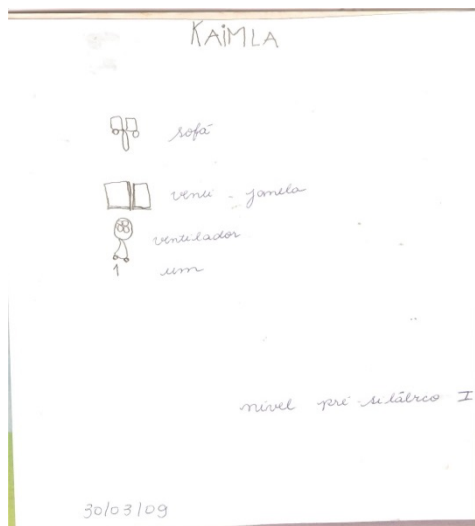 KAiMLA
sofá
venti - janela
ventilador
1 um
nível pré-silábico I
30/03/09